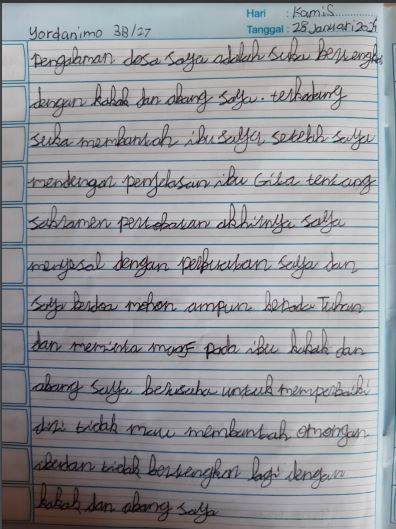 Hari : Kamis
Yordanimo 3B/27 Tanggal : 28 Januari 2021
Pengalaman dosa saya adalah suka bertengkar
dengan kakak dan abang saya. terkadang
suka membantah ibu saya setelah saya
mendengar penjelasan ibu Gita tentang
sakramen pertobatan akhirnya saya
menyesal dengan perbuatan saya dan
saya berdoa mohon ampun kepada Tuhan
dan meminta maaf pada ibu kakak dan
abang saya berusaha untuk memperbaiki
diri tidak mau membantah omongan
ibu dan tidak bertengkar lagi dengan
kakak dan abang saya